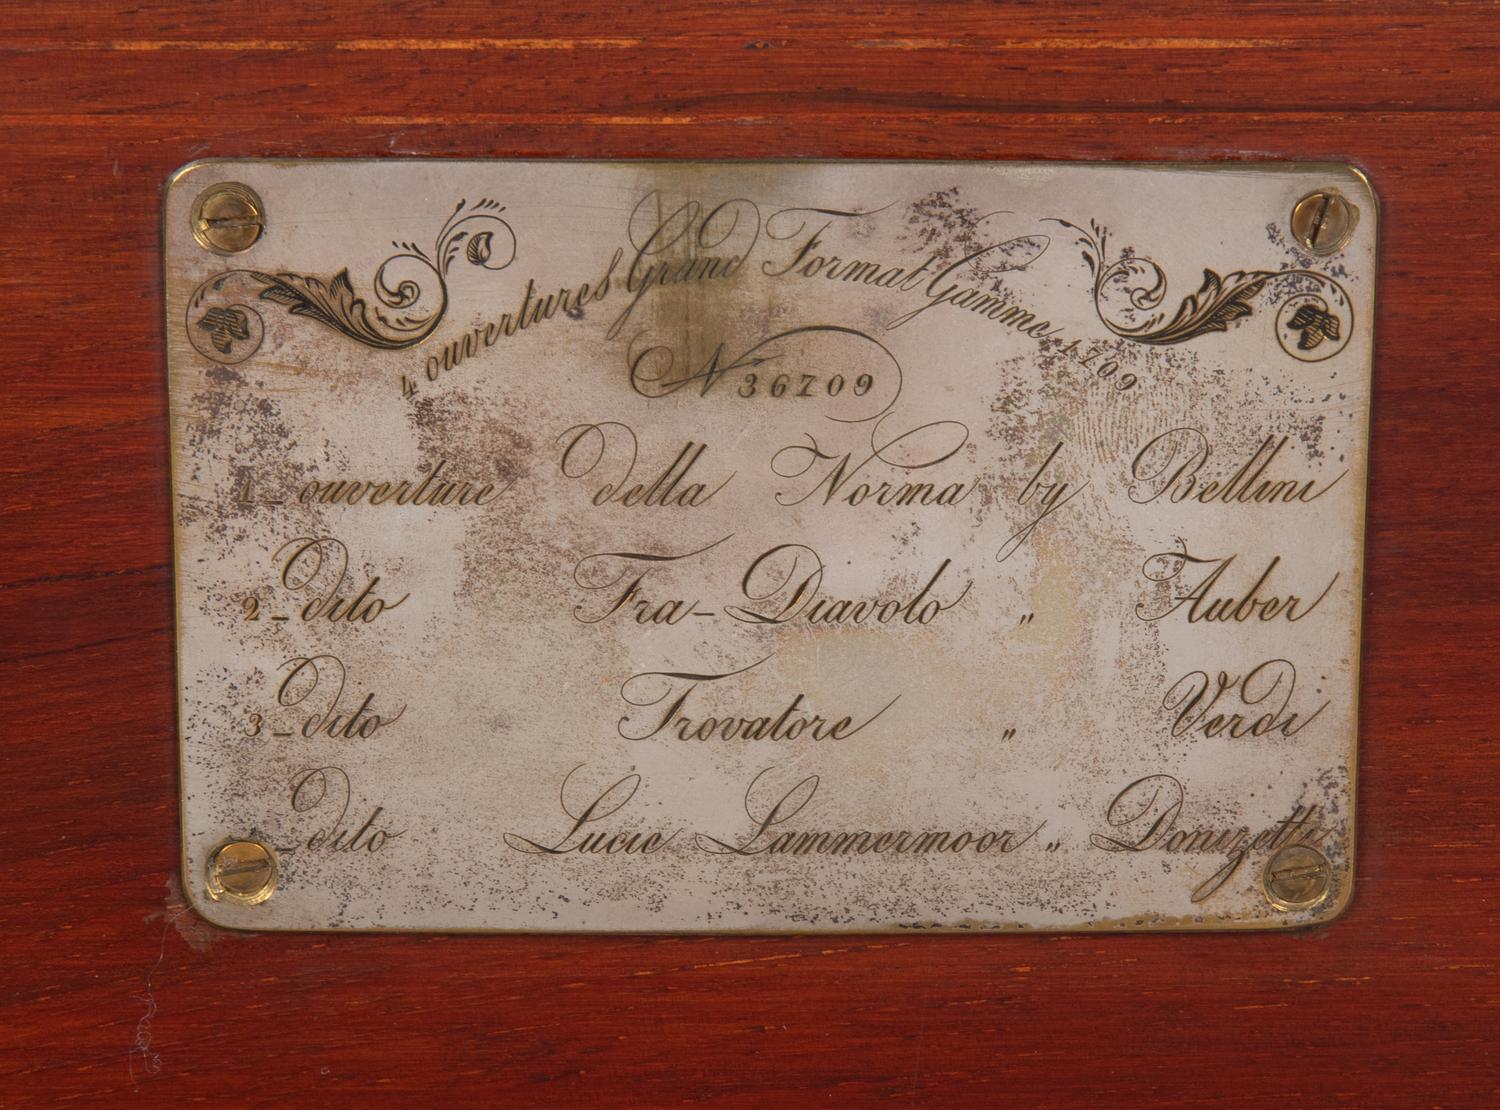 4 ouvertures Grand Format Gamme 1709
N 36709
1_ ouverture della Norma by Bellini
2_ dito Fra-Diavolo " Auber
3_ dito Trovatore " Verdi
_ dito Lucie Lammermoor " Donizetti